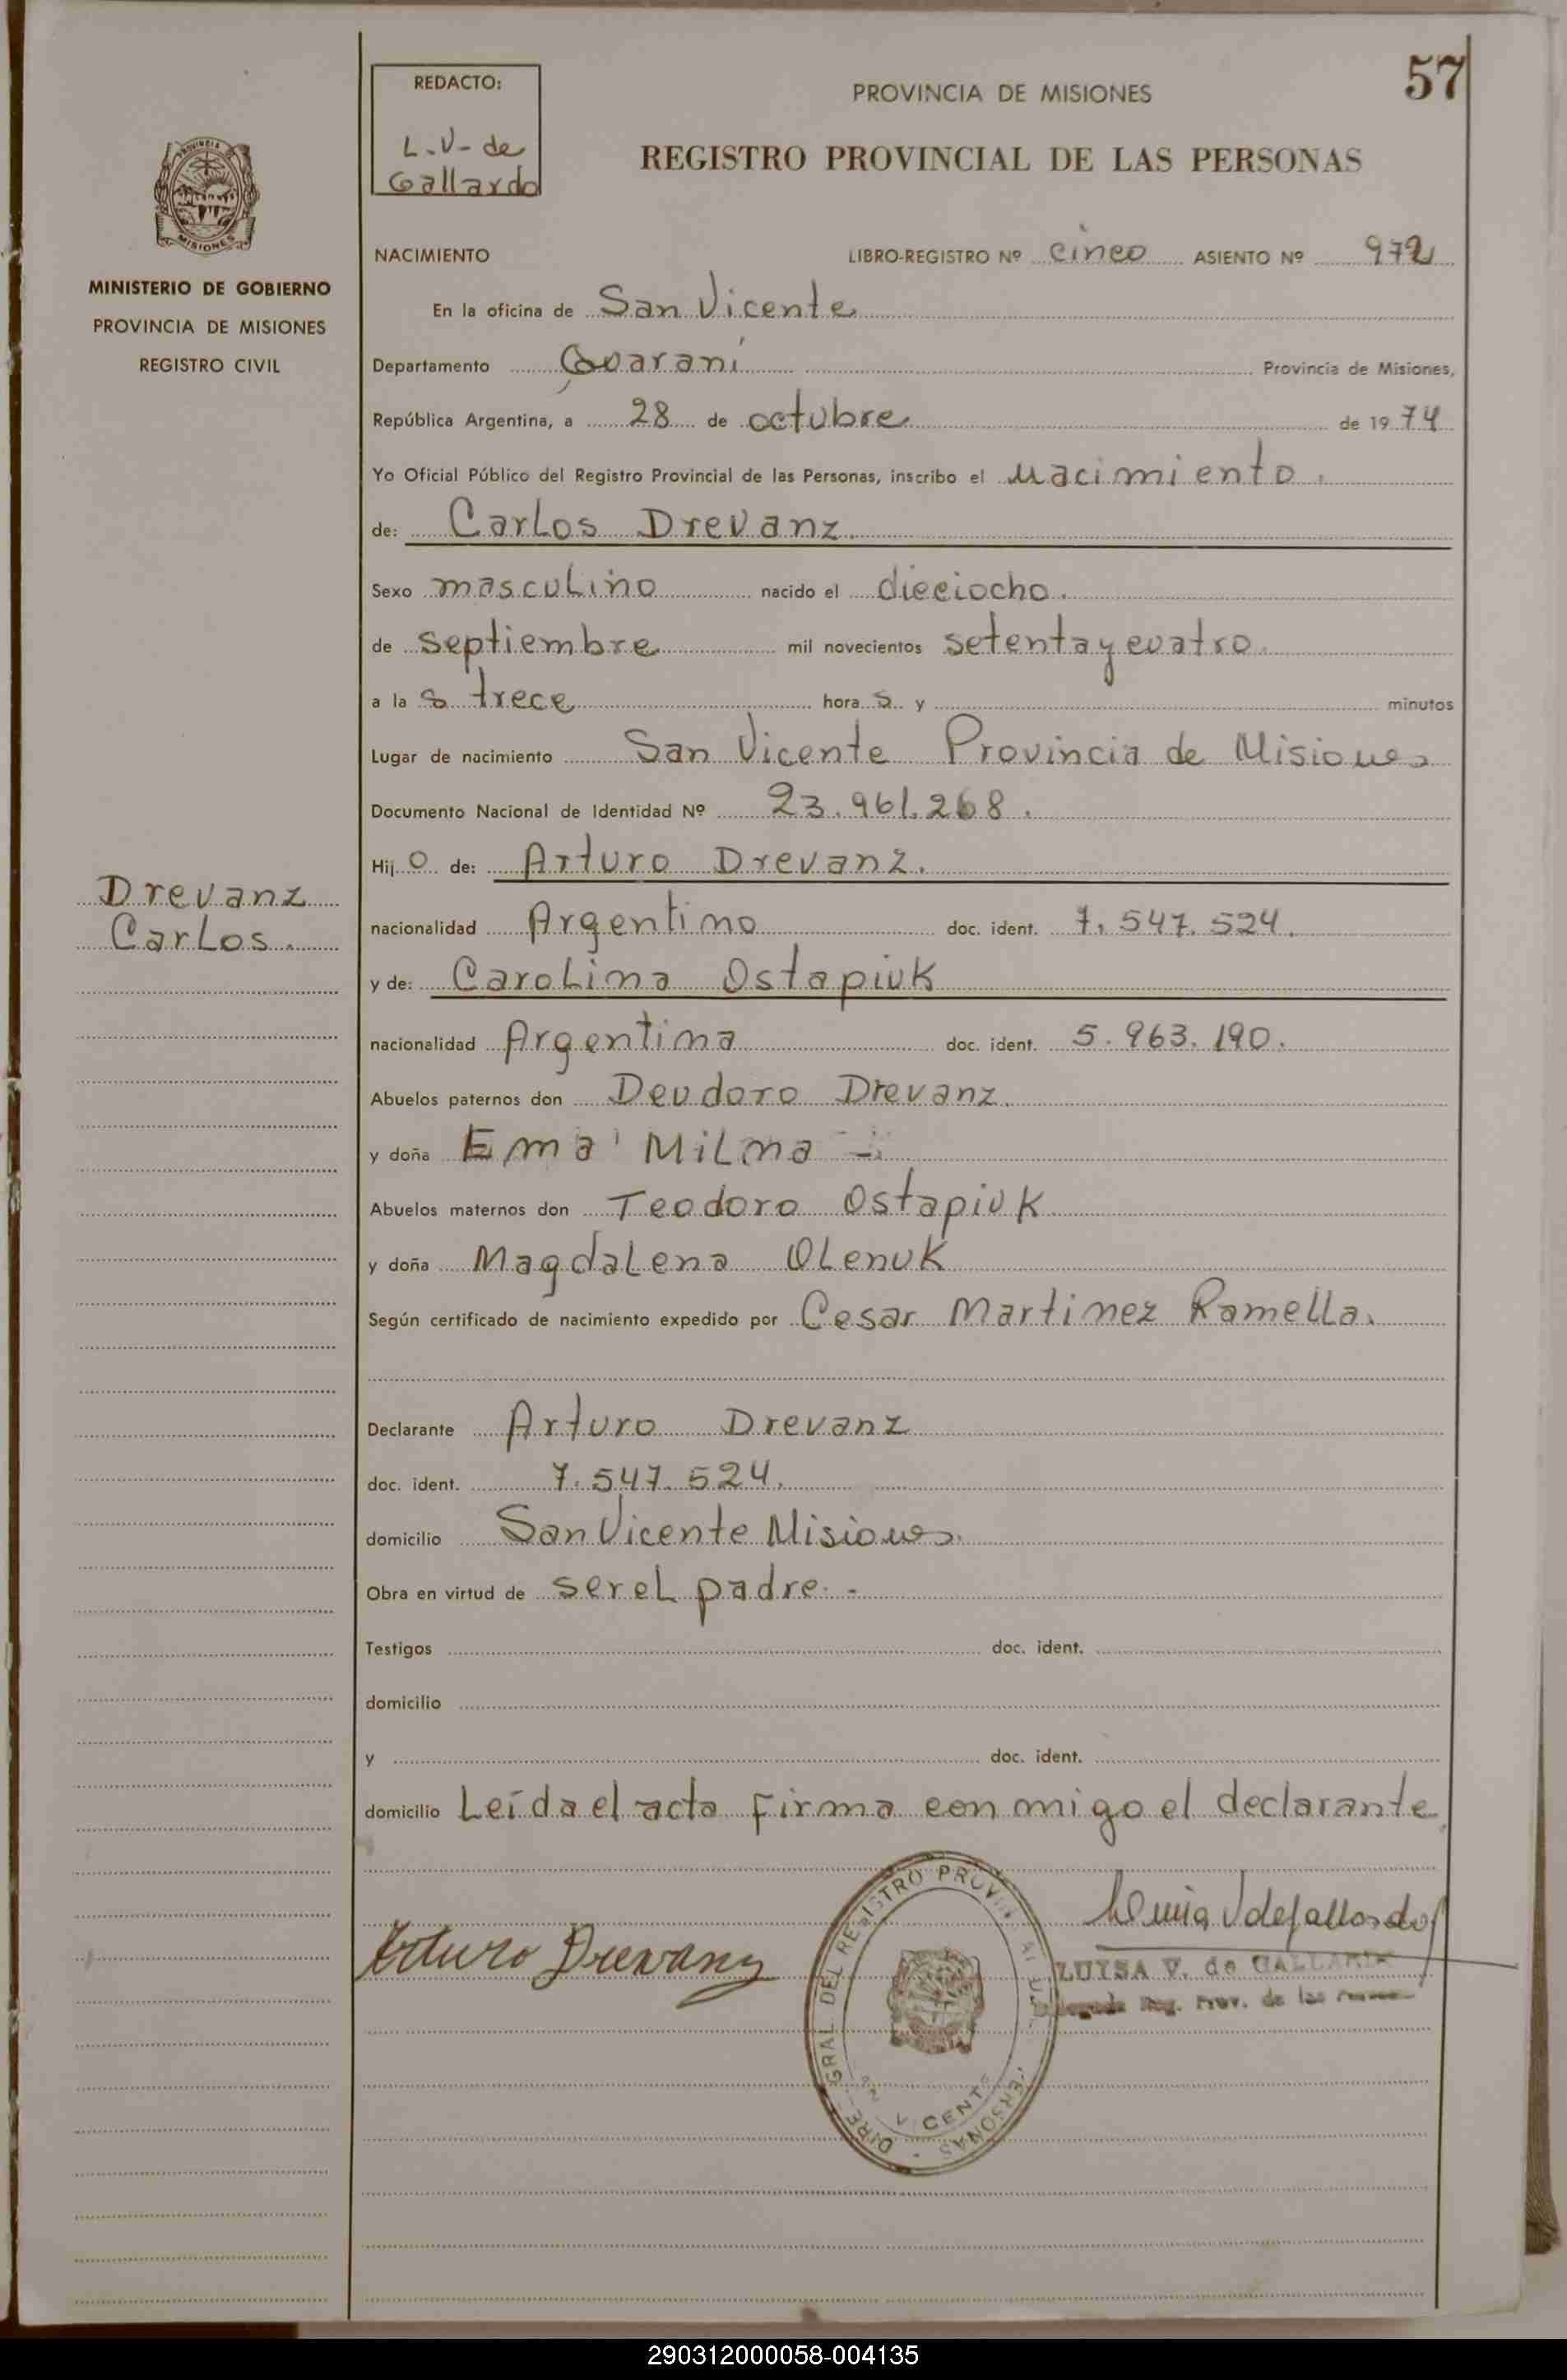 57
REDACTO:
L.V- de
Gallardo
PROVINCIA DE MISIONES
REGISTRO PROVINCIAL DE LAS PERSONAS
PROVINCIA
MISIONES
MINISTERIO DE GOBIERNO
PROVINCIA DE MISIONES
REGISTRO CIVIL
NACIMIENTO LIBRO-REGISTRO Nº cinco ASIENTO Nº 972
En la oficina de San Vicente
Departamento Guaraní Provincia de Misiones,
República Argentina, a 28 de octubre de 1974
Yo Oficial Público del Registro Provincial de las Personas, inscribo el Nacimiento.
de: Carlos Drevanz.
Sexo masculino nacido el dieciocho.
de septiembre mil novecientos setenta y cuatro.
a la s trece hora s y minutos
Lugar de nacimiento San Vicente Provincia de Misiones
Documento Nacional de Identidad Nº 23.961.268.
Hijo de: Arturo Drevanz.
Drevanz
Carlos.
nacionalidad Argentino doc. ident. 7.547.524.
y de: Carolina Ostapiuk
nacionalidad Argentina doc. ident. 5.963.190.
Abuelos paternos don Deudoro Drevanz.
y doña Ema Milma
Abuelos maternos don Teodoro Ostapiuk
y doña Magdalena Olenuk
Según certificado de nacimiento expedido por Cesar Martinez Ramella.
Declarante Arturo Drevanz
doc. ident. 7.547.524.
domicilio San Vicente Misiones.
Obra en virtud de ser el padre.-
Testigos doc. ident.
domicilio
y doc. ident.
domicilio Leída el acta firma conmigo el declarante.
Arturo Drevanz
LUISA V. de GALLARDO
Reg. Prov. de las
290312000058-004135